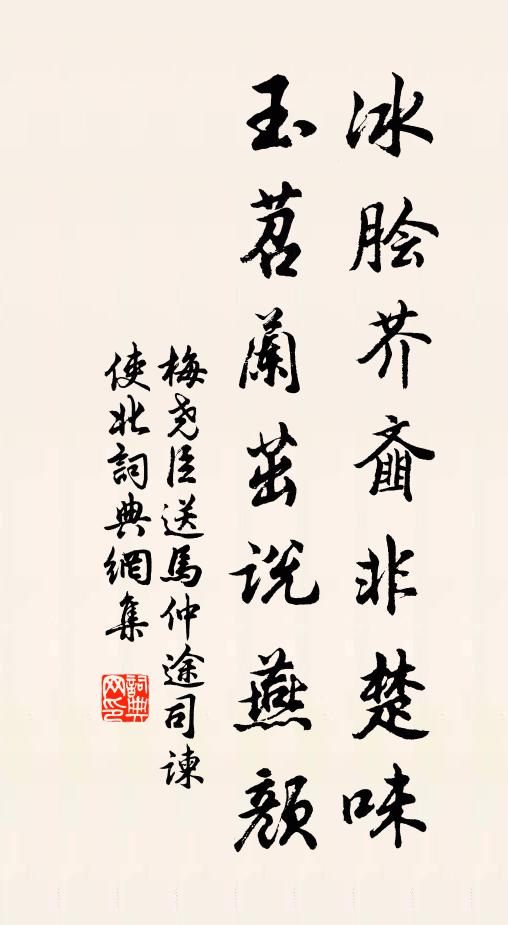 冰脍芥齑非楚味
玉苕兰茁说燕颜
梅尧臣送馬仲途司谏
使北詞典網集
詞典网印